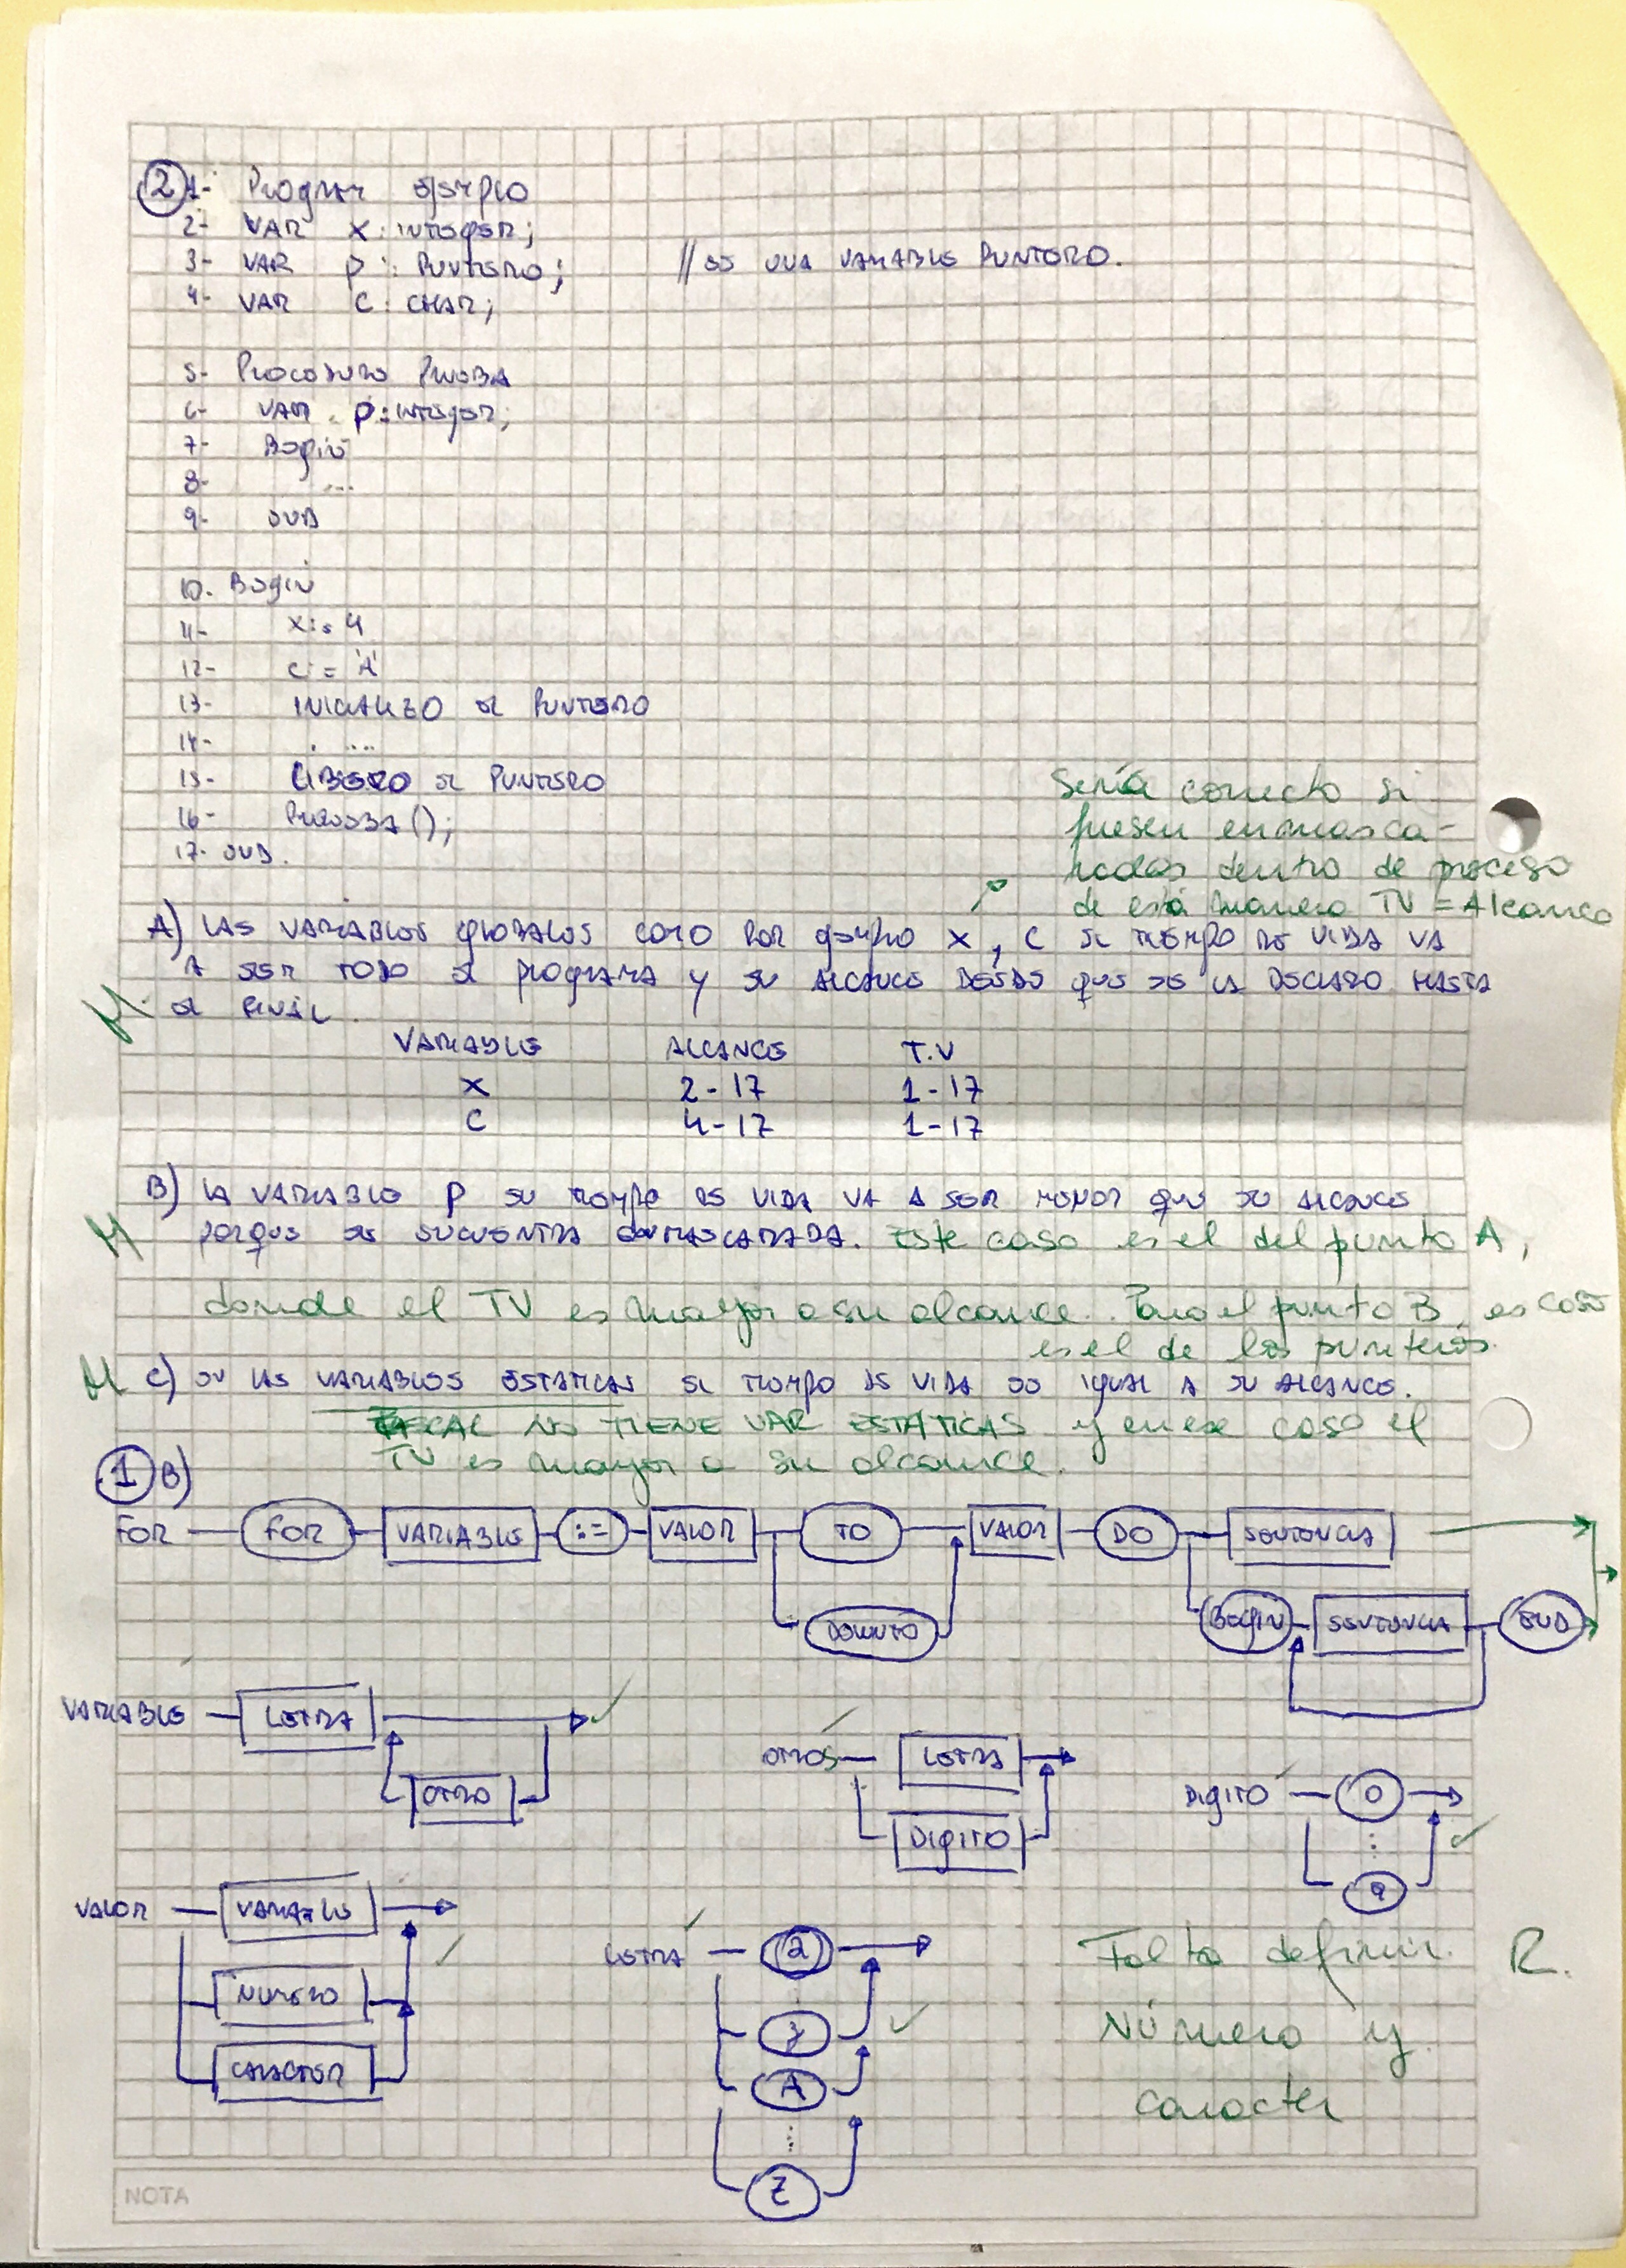 ② 1- Program ejemplo
2- VAR X: INTEGER;
3- VAR P: PUNTERO; // ES UNA VARIABLE PUNTERO.
4- VAR C: CHAR;
5- PROCEDURE PRUEBA
6- VAR P: INTEGER;
7- BEGIN
8- ...
9- END
10. BEGIN
11- X:= 4
12- C:= 'A'
13- INICIALIZO EL PUNTERO
14- ....
15- LIBERO EL PUNTERO
16- PRUEBA();
17- END.
Sería correcto si
fuesen enmasca-
radas dentro de proceso
de esta manera TV = Alcance
A) LAS VARIABLES GLOBALES COMO POR EJEMPLO X, C EL TIEMPO DE VIDA VA
A SER TODO EL PROGRAMA Y SU ALCANCE DESDE QUE SE LA DECLARO HASTA
M. EL FINAL.
VARIABLE ALCANCE T.V
X 2-17 1-17
C 4-17 1-17
B) LA VARIABLE P SU TIEMPO DE VIDA VA A SER MENOR QUE SU ALCANCE
M PORQUE SE ENCUENTRA ENMASCARADA. Este caso es el del punto A,
donde el TV es mayor a su alcance. Para el punto B, es caso
es el de los punteros.
M C) EN LAS VARIABLES ESTATICAS EL TIEMPO DE VIDA ES IGUAL A SU ALCANCE.
NO TIENE VAR ESTÁTICAS y en ese caso el
TV es mayor a su alcance.
① B)
FOR FOR VARIABLE := VALOR TO VALOR DO SENTENCIA
DOWNTO BEGIN SENTENCIA END
VARIABLE LETRA
OTRO
OTROS LETRA
DIGITO
DIGITO 0
⋮
9
VALOR VARIABLE
NUMERO
CARACTER
LETRA a
z
A
⋮
Z
Falta definir R.
Número y
caracter
NOTA